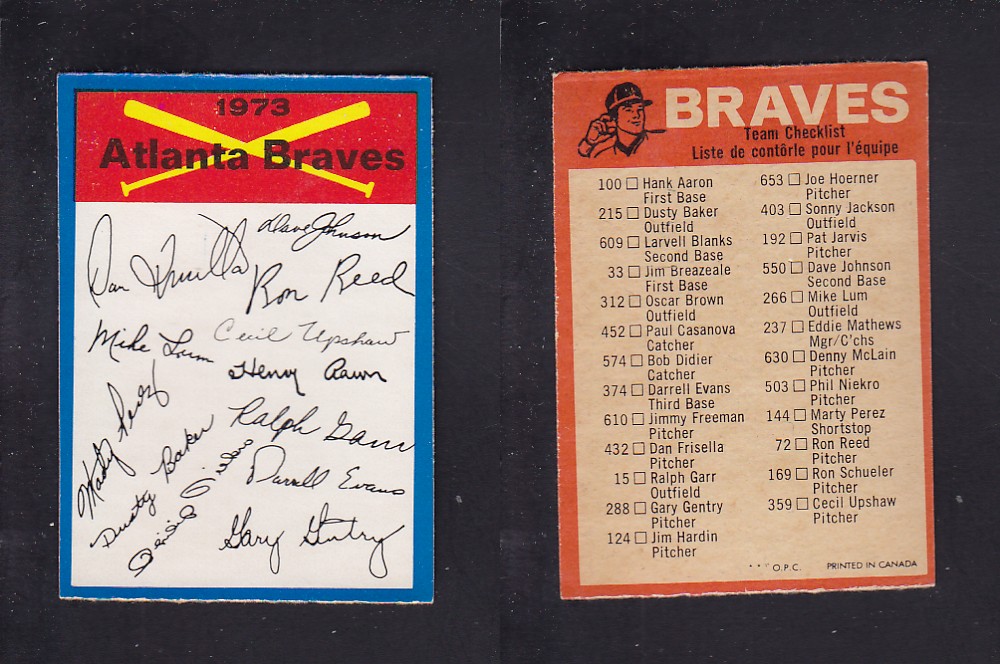 1973
Atlanta Braves
Dave Johnson
Dan Frisella
Ron Reed
Mike Lum
Cecil Upshaw
Henry Aaron
Marty Perez
Ralph Garr
Dusty Baker
Darrell Evans
Gary Gentry
BRAVES
Team Checklist
Liste de contôrle pour l'équipe
100 □ Hank Aaron
First Base
215 □ Dusty Baker
Outfield
609 □ Larvell Blanks
Second Base
33 □ Jim Breazeale
First Base
312 □ Oscar Brown
Outfield
452 □ Paul Casanova
Catcher
574 □ Bob Didier
Catcher
374 □ Darrell Evans
Third Base
610 □ Jimmy Freeman
Pitcher
432 □ Dan Frisella
Pitcher
15 □ Ralph Garr
Outfield
288 □ Gary Gentry
Pitcher
124 □ Jim Hardin
Pitcher
653 □ Joe Hoerner
Pitcher
403 □ Sonny Jackson
Outfield
192 □ Pat Jarvis
Pitcher
550 □ Dave Johnson
Second Base
266 □ Mike Lum
Outfield
237 □ Eddie Mathews
Mgr/C'chs
630 □ Denny McLain
Pitcher
503 □ Phil Niekro
Pitcher
144 □ Marty Perez
Shortstop
72 □ Ron Reed
Pitcher
169 □ Ron Schueler
Pitcher
359 □ Cecil Upshaw
Pitcher
* * * O.P.C. PRINTED IN CANADA